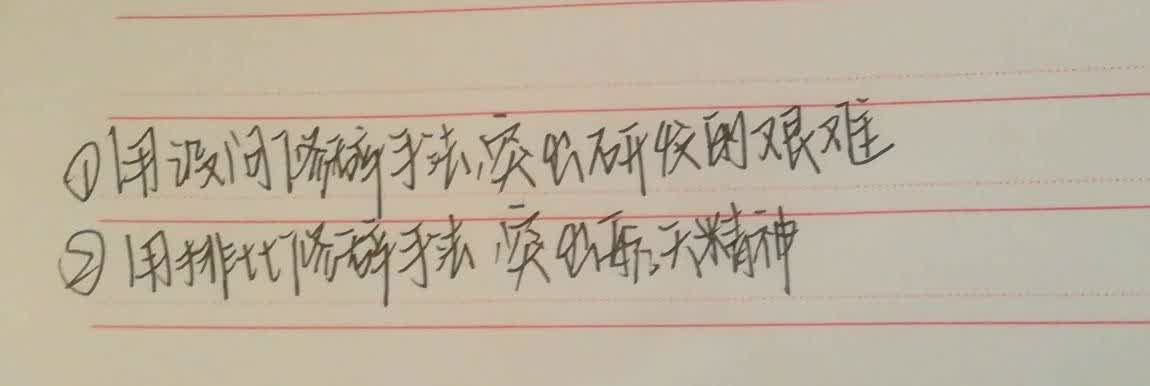 ①用设问修辞手法,突出研发的艰难
②用排比修辞手法,突出航天精神